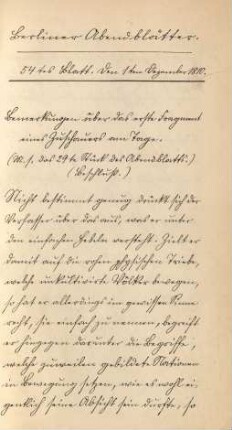 Berliner Abendblätter.
54tes Blatt. Den 1ten Dezember 1810.
Bemerkungen über das erste Fragment
eines Zuschauers am Tage.
(M. s. das 29te Stück des Abendblatts.)
(Beschluß.)
Nicht bestimmt genug drückt sich der
Verfasser über das aus, was er unter
den einfachen Hebeln versteht. Zielt er
damit auf die rohen physischen Triebe,
welche unkultivirte Völker bewegen,
so hat er allerdings in gewissem Sinne
recht, sie einfach zu nennen; begreift
er hingegen darunter die Begriffe,
welche zuweilen gebildete Nationen
in Bewegung setzen, wie es wohl ei-
gentlich seine Absicht sein dürfte, so